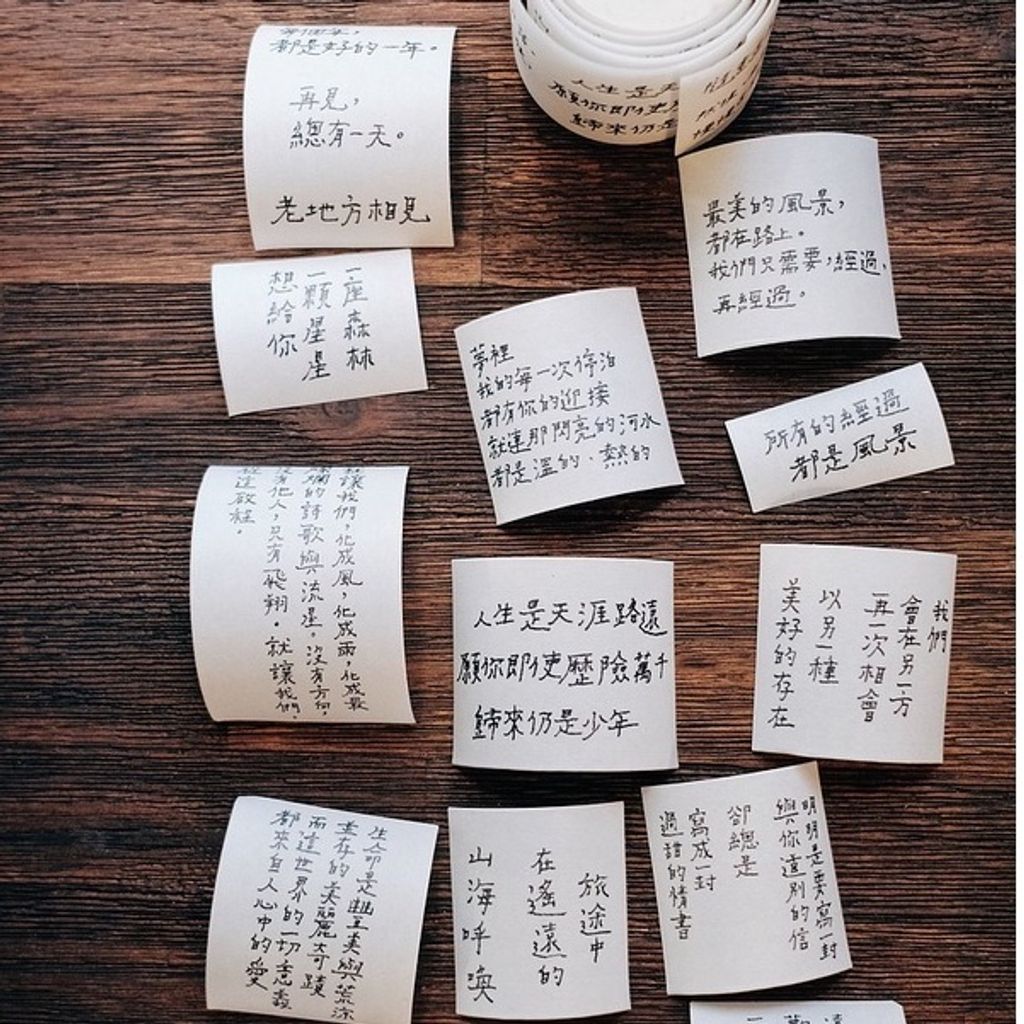 都是好的一年。
再見，
總有一天。
老地方相見
人生是天
願你即使
歸來仍是
最美的風景，
都在路上。
我們只需要，經過，
再經過。
一座森林
一顆星星
想給你
夢裡
我的每一次停泊
都有你的迎接
就連那閃亮的河水
都是溫的、熱的
所有的經過
都是風景
就讓我們，化成風，化成雨，化成最
燦爛的詩歌與流星。沒有方向，
沒有他人，只有飛翔。就讓我們，
在這啟程。
人生是天涯路遠
願你即使歷險萬千
歸來仍是少年
我們
會在另一方
再一次相會
以另一種
美好的存在
生命是豐美與荒涼
並存的美麗奇蹟
而這世界的一切意義
都來自人心中的愛
旅途中
在遙遠的
山海呼喚
明明是要寫一封
與你遠別的信
卻總是
寫成一封
過甜的情書